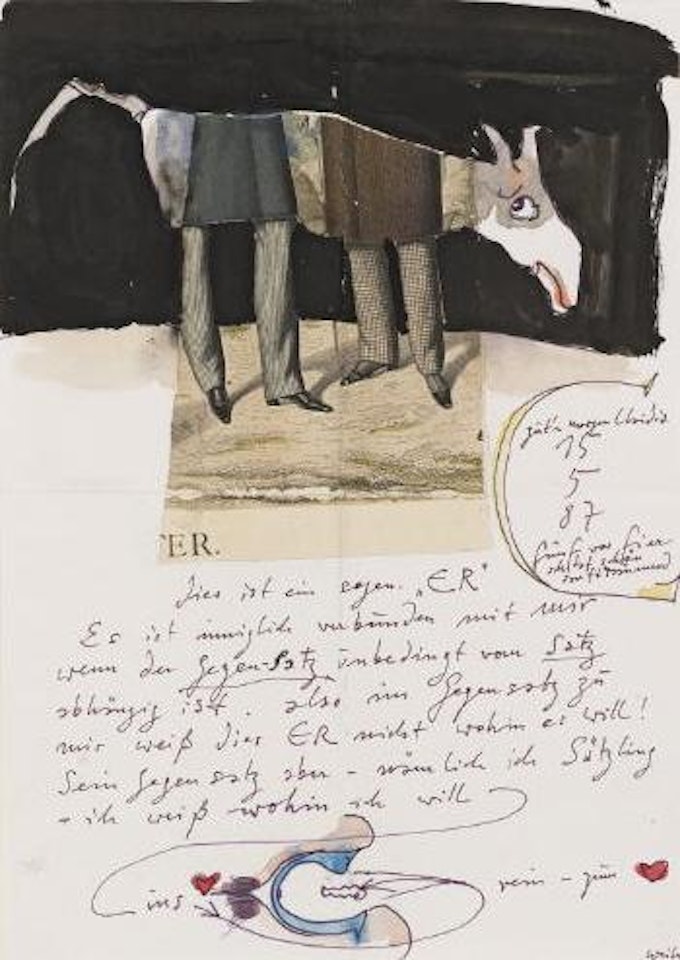 TER.
15
5
87
fünf vor vier
dies ist ein sogen. "ER"
Es ist inniglich verbunden mit mir
wenn der Gegen-Satz unbedingt vom Satz
abhängig ist. also im Gegensatz zu
mir weiß dies ER nicht wohin es will!
Sein Gegensatz aber – nämlich ich Sätzling
– ich weiß wohin ich will
ins
rein – zum